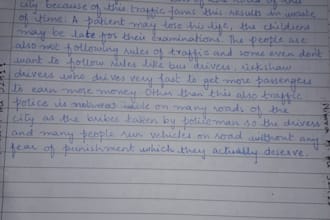 city because of this traffic jams this results in waste
of time. A patient may lose his life, the children
may be late for their examinations. The people are
also not following rules of traffic and some even don't
want to follow rules like bus drivers, rickshaw
drivers who drives very fast to get more passengers
to earn more money. Other than this also traffic
police is on many roads of the
city as the bribes taken by policeman so the drivers
and many people run vehicles on road without any
fear of punishment which they actually deserve.